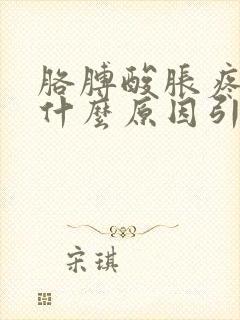 胳膊酸脹疼
什麼原因引
宋琪